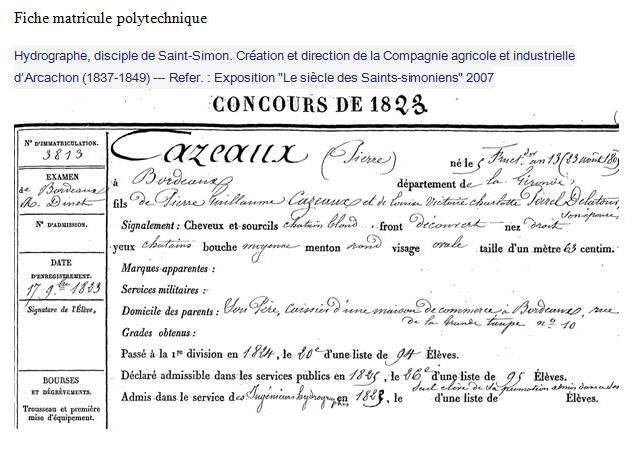 Fiche matricule polytechnique
Hydrographe, disciple de Saint-Simon. Création et direction de la Compagnie agricole et industrielle
d'Arcachon (1837-1849) --- Refer. : Exposition "Le siècle des Saints-simoniens" 2007
CONCOURS DE 1823
N° D'IMMATRICULATION.
3813
EXAMEN
de Bordeaux
M. Dinet
N° D'ADMISSION.
DATE
D'ENREGISTREMENT.
17 9.bre 1823
Signature de l'Élève,
BOURSES
ET DÉGRÈVEMENTS.
Trousseau et première
mise d'équipement.
Cazeaux (Pierre) né le 5 Fruct.dor an 13 (23 août
à Bordeaux département de la Gironde,
fils de Pierre Guillaume Cazeaux et de Louise Victoire Charlotte
son épouse
Signalement : Cheveux et sourcils chatain blond front découvert nez droit
yeux chatains bouche moyenne menton rond visage ovale taille d'un mètre 63 centim.
Marques apparentes :
Services militaires :
Domicile des parents : Son Père, caissier d'une maison de commerce à Bordeaux, rue
de la Grande taupe n° 10
Grades obtenus :
Passé à la 1re division en 1824, le 20e d'une liste de 94 Élèves.
Déclaré admissible dans les services publics en 1825, le 26e d'une liste de 95 Élèves.
Admis dans le service des Ingénieurs hydrographes en 1825, le d'une liste de Élèves.
Seul élève de sa promotion admis dans ce